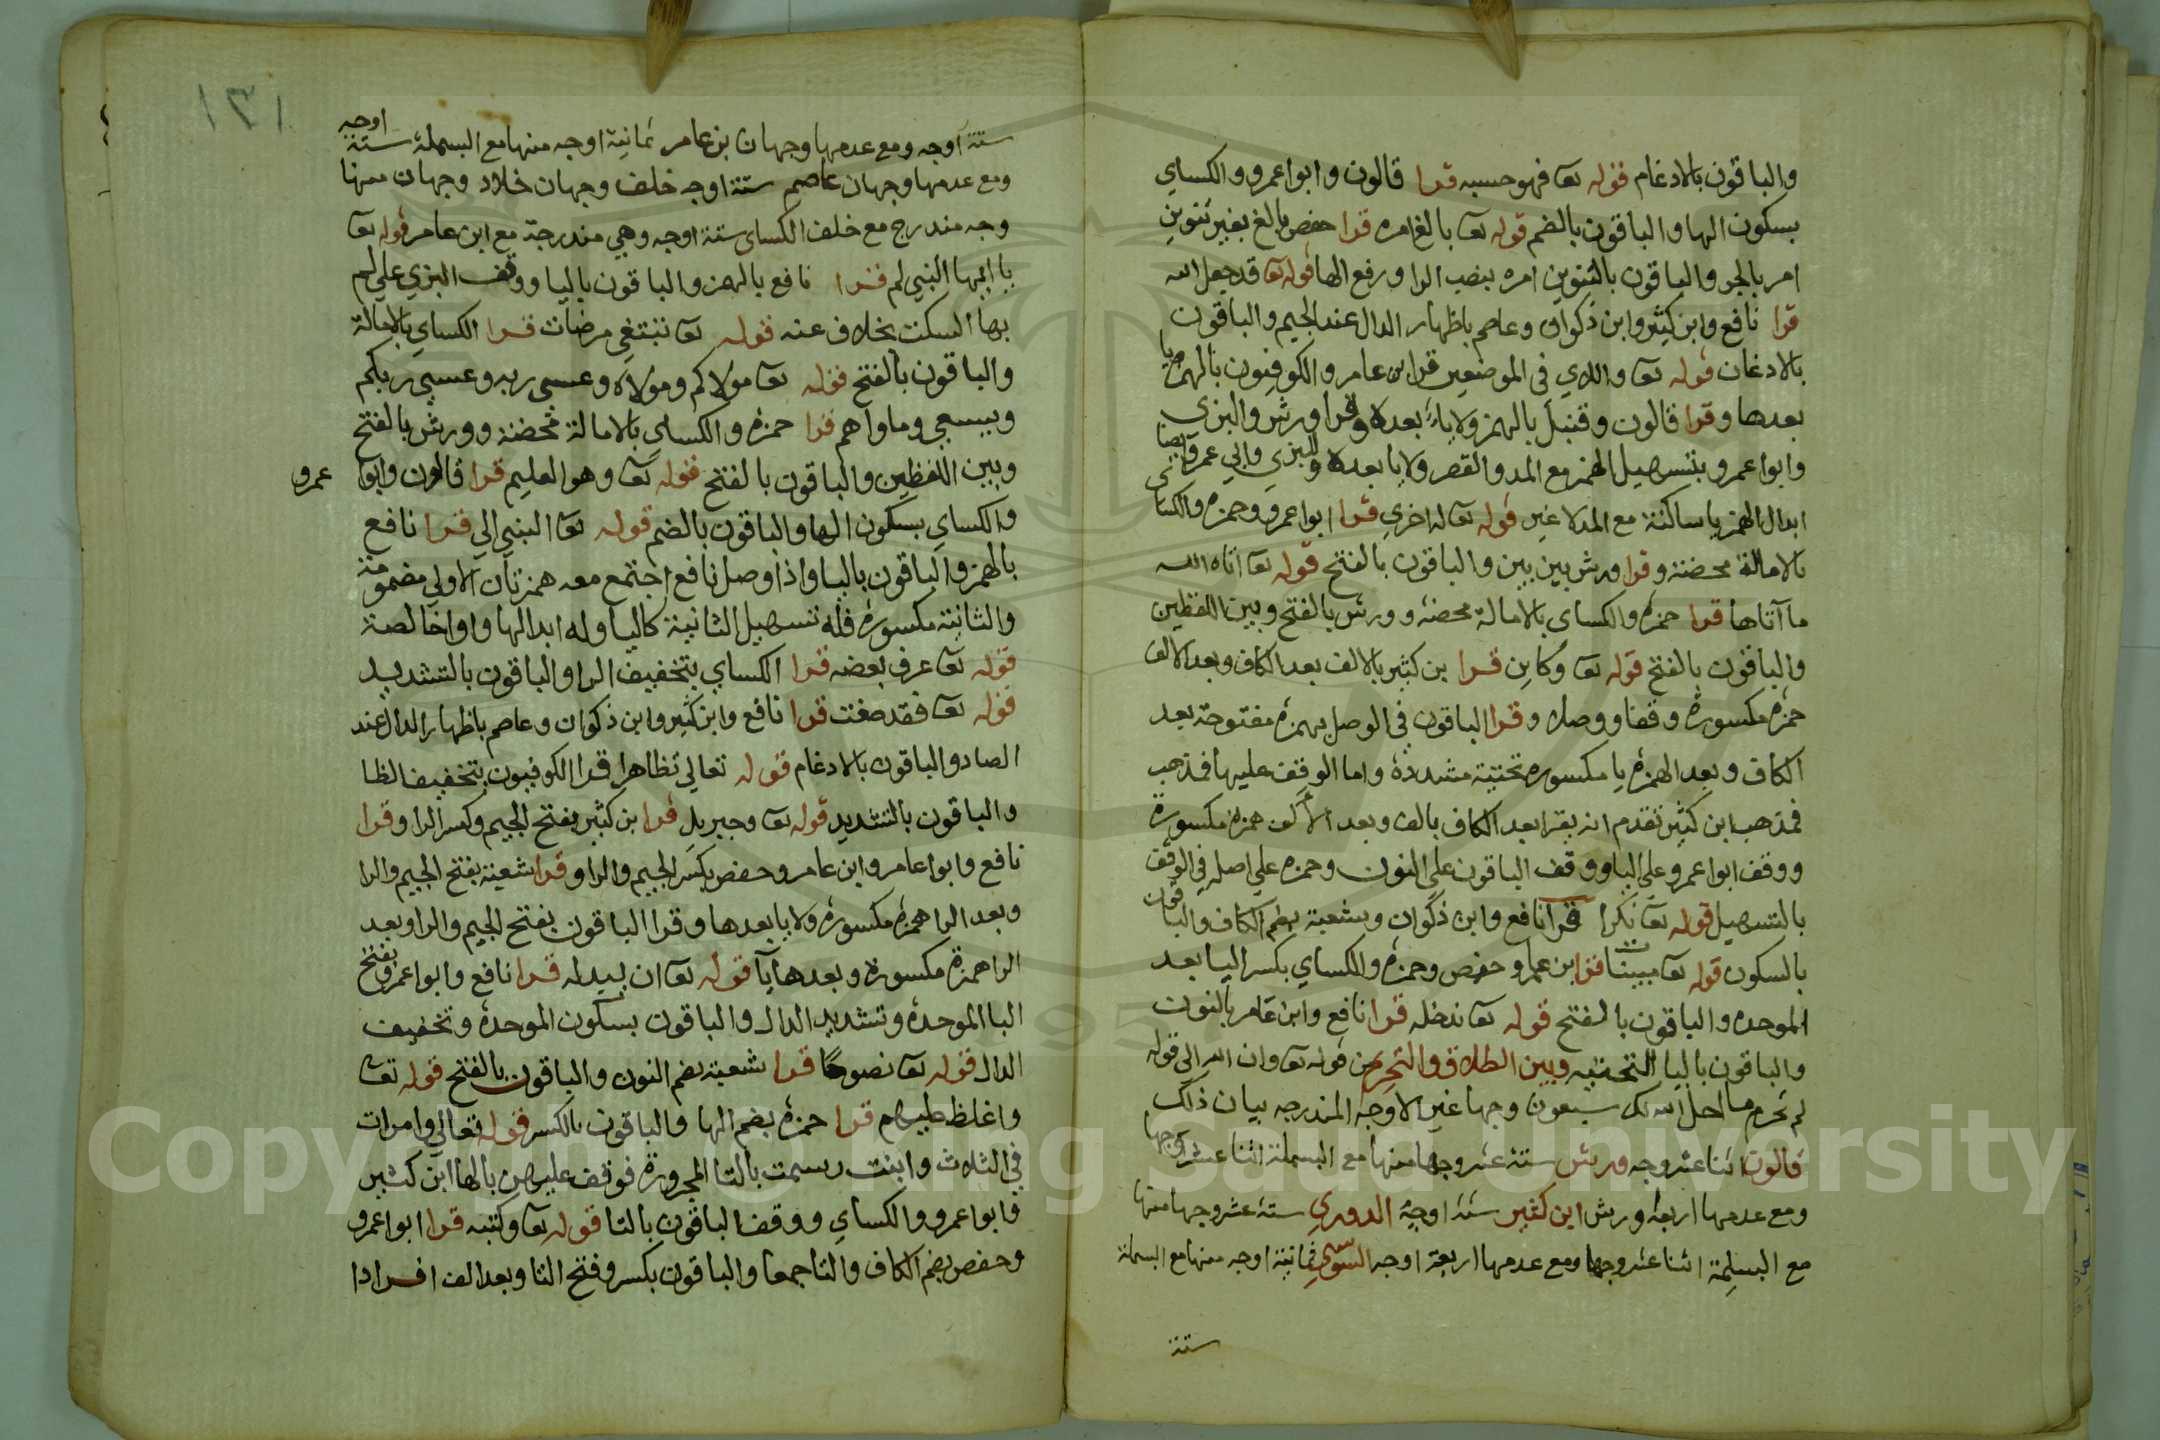 والباقون بالادغام قوله تعا فهو حسبه قرا قالون وابوا عمرو والكساي
بسكون الها والباقون بالضم قوله تعا بالغ امره قرا حفص بالغ بغير تنوين
امر بالجر والباقون بالتنوين امره بنصب الرا ورفع الها قوله تعا قد جعل الله
قرا نافع وابن كثير وابن ذكوان وعاصم باظهار الدال عند الجيم والباقون
بالادغان قوله تعا واللاي في الموضعين قرا بن عامر والكوفيون بالهمز ويا
بعدها وقرا قالون وقنبل بالهمز ولا ياء بعده وقرا ورش والبزي
وابوا عمرو بتسهيل الهمز مع المد والقصر ولا يا بعده وللبزي وابي عمرو ايضا
ابدال الهمز يا ساكنة مع المد لا غير قوله تعا له اخري قرا ابوا عمرو وحمزه والكسائي
بالامالة محضنة وقرا ورش بين بين والباقون بالفتح قوله تعا اتاه الله
ما آتاها قرا حمزه والكساي بالامالة محضه وورش بالفتح وبين اللفظين
والباقون بالفتح قوله تعا وكاين قرا بن كثير بالالف بعد الكاف وبعد الالف
حمزه مكسورة وقفا ووصلا وقرا الباقون في الوصل بهمزه مفتوحة بعد
الكاف وبعد الهمزه يا مكسوره تحتية مشددة واما الوقف عليها فذهب
فمذهب ابن كثير تقدم انه يقرا بعد الكاف بالف وبعد الألف همزة مكسورة
ووقف ابوا عمرو علي اليا ووقف الباقون علي النون وحمزه علي اصله في الوقف
بالتسهيل قوله تعا نكرا قرا نافع وابن ذكوان وشعبة بضم الكاف والباقون
بالسكون قوله تعا مبينات قرا بن عامر وحفص وحمزه والكساي بكسر اليا بعد
الموحده والباقون بالفتح قوله تعا ندخله قرا نافع وابن عامر بالنون
والباقون باليا التحتيه وبين الطلاق والتحريم من قوله تعا وان الله الي قوله
لم تحرم ما احل الله لك سبعون وجها غير الاوجه المندرجه بيان ذلك
قالون اثنا عشر وجه ورش ستة عشر وجها منها مع البسملة اثنا عشر وجها
ومع عدمها اربعه ورش ابن كثير ستة اوجه الدوري ستة عشر وجها منها
مع البسلمة اثنا عشر وجها ومع عدمها اربعة اوجه السوسي ثمانية اوجه منها مع البسملة
ستة
١٣١
ستة اوجه ومع عدمها وجهان بن عامر ثمانية اوجه منها مع البسملة ستة اوجه
ومع عدمها وجهان عاصم ستة اوجه خلف وجهان خلاد وجهان منها
وجه مندرج مع خلف الكساي ستة اوجه وهي مندرجة مع ابن عامر قوله تعا
يا ايها النبي لم قرا نافع بالهمز والباقون باليا ووقف البزي علي لم
بها السكت بخلاف عنه قوله تعا تبتغي مرضات قرا الكساي بالامالة
والباقون بالفتح قوله تعا مولاكم ومولاه وعسى ربه وعسي ربكم
ويسعي وماواهم قرا حمزه والكساي بالامالة محضنة وورش بالفتح
وبين اللفظين والباقون بالفتح قوله تعا وهو العليم قرا قالون وابوا عمرو
والكساي بسكون الها والباقون بالضم قوله تعا النبي الي قرا نافع
بالهمز والباقون باليا واذا وصل نافع اجتمع معه همزتان الاولي مضمومة
والثانية مكسورة فله تسهيل الثانية كاليا وله ابدالها واوا خالصة
قوله تعا عرف بعضه قرا الكساي بتخفيف الرا والباقون بالتشديد
قوله تعا فقد صغت قرا نافع وابن كثير وابن ذكوان وعاصم باظهار الدال عند
الصاد والباقون بالادغام قوله تعالي تظاهرا قرا الكوفيون بتخفيف الظا
والباقون بالتشديد قوله تعا وجبريل قرا بن كثير بفتح الجيم وكسر الرا وقرا
نافع وابوا عامر وابن عامر وحفص بكسر الجيم والرا وقرا شعبة بفتح الجيم والرا
وبعد الرا همزه مكسوره ولا يا بعدها وقرا الباقون بفتح الجيم والرا وبعد
الرا همزة مكسورة وبعدها يآ قوله تعا ان يبدله قرا نافع وابوا عمرو بفتح
البا الموحدة وتشديد الدال والباقون بسكون الموحدة وتخفيف
الدال قوله تعا نصوحا قرا شعبة بضم النون والباقون بالفتح قوله تعا
واغلظ عليهم قرا حمزه بضم الها والباقون بالكسر قوله تعالي وامرات
في الثلاث وابنت رسمت بالتا المجرورة فوقف عليهن بالها ابن كثير
وابوا عمرو والكساي ووقف الباقون بالتا قوله تعا وكتبه قرا ابوا عمرو
وحفص بضم الكاف والتا جمعا والباقون بكسر وفتح التا وبعد الف افرادا
Copyright © King Saud University